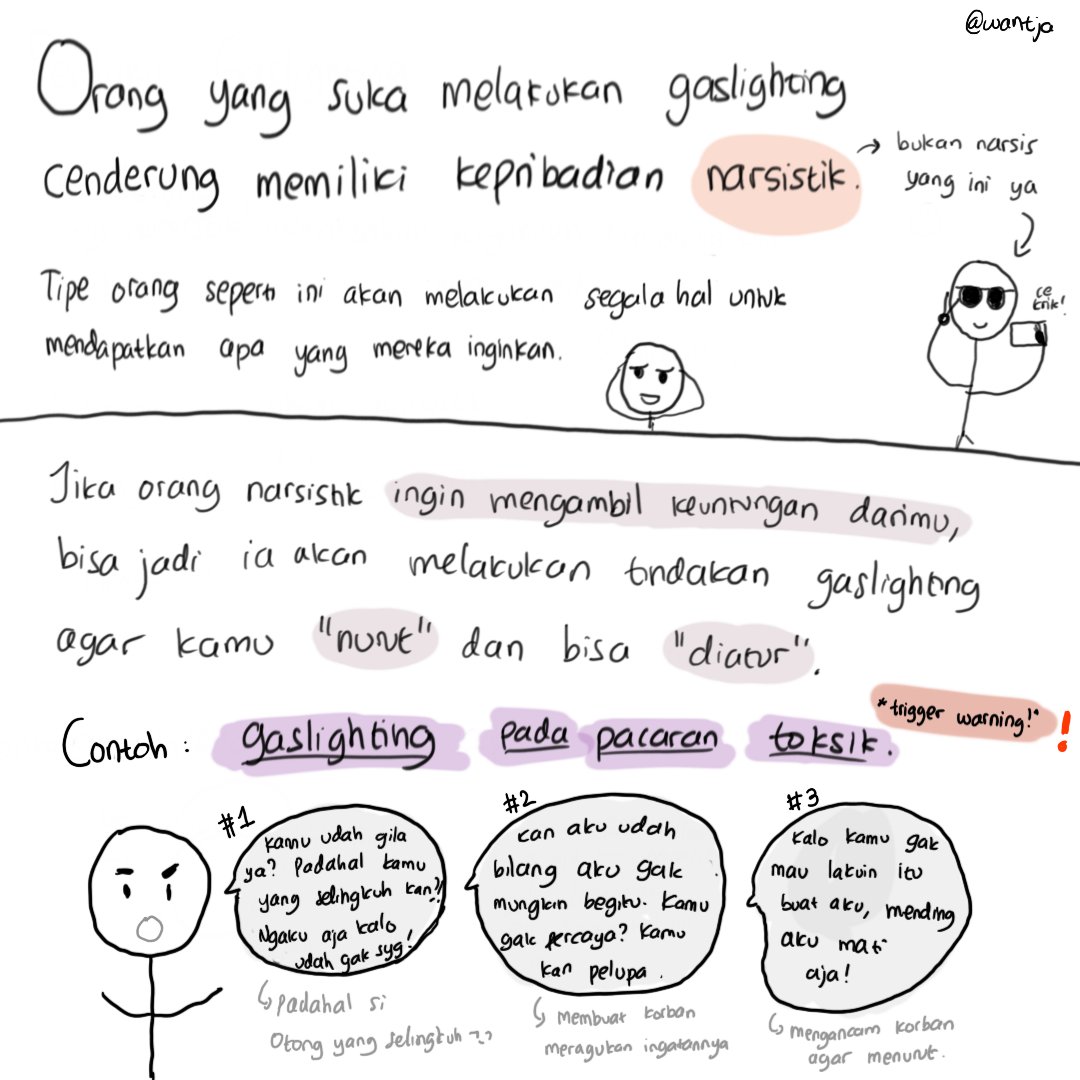 @wantja
Orang yang suka melakukan gaslighting
cenderung memiliki kepribadian narsistik.
bukan narsis
yang ini ya
Tipe orang seperti ini akan melakukan segala hal untuk
mendapatkan apa yang mereka inginkan.
ce
krik!
Jika orang narsistik ingin mengambil keuntungan darimu,
bisa jadi ia akan melakukan tindakan gaslighting
agar kamu "nurut" dan bisa "diatur".
*trigger warning!*
!
Contoh : gaslighting pada pacaran toksik.
#1
kamu udah gila
ya? Padahal kamu
yang selingkuh kan?!
Ngaku aja kalo
udah gak syg!
Padahal si
Otong yang selingkuh -_-
#2
kan aku udah
bilang aku gak
mungkin begitu. Kamu
gak percaya? Kamu
kan pelupa.
Membuat korban
meragukan ingatannya
#3
Kalo kamu gak
mau lakuin itu
buat aku, mending
aku mati
aja!
mengancam korban
agar menurut.